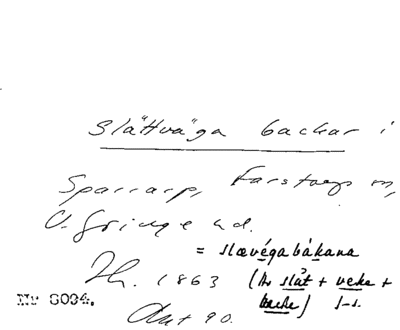 Slättväga backar i
Sparrarp, Farstorps sn,
V. Göinge hd.
= slævégabákana
Th. 1863 (Av slät + veka +
backe) S-s.
No 8034.
Ant 90.